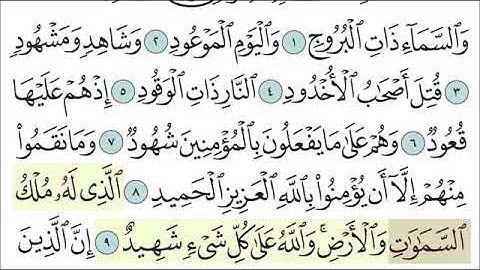 وَٱلسَّمَآءِ ذَاتِ ٱلْبُرُوجِ ١ وَٱلْيَوْمِ ٱلْمَوْعُودِ ٢ وَشَاهِدٍ وَمَشْهُودٍ
٣ قُتِلَ أَصْحَٰبُ ٱلْأُخْدُودِ ٤ ٱلنَّارِ ذَاتِ ٱلْوَقُودِ ٥ إِذْ هُمْ عَلَيْهَا
قُعُودٌ ٦ وَهُمْ عَلَىٰ مَا يَفْعَلُونَ بِٱلْمُؤْمِنِينَ شُهُودٌ ٧ وَمَا نَقَمُوا۟
مِنْهُمْ إِلَّآ أَن يُؤْمِنُوا۟ بِٱللَّهِ ٱلْعَزِيزِ ٱلْحَمِيدِ ٨ ٱلَّذِى لَهُۥ مُلْكُ
ٱلسَّمَٰوَٰتِ وَٱلْأَرْضِ ۚ وَٱللَّهُ عَلَىٰ كُلِّ شَىْءٍ شَهِيدٌ ٩ إِنَّ ٱلَّذِينَ